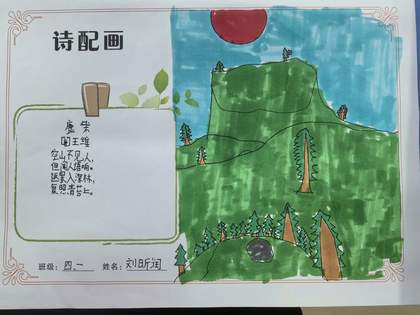 诗配画
鹿柴
唐王维
空山不见人，
但闻人语响。
返景入深林，
复照青苔上。
班级：四.一 姓名：刘昕润